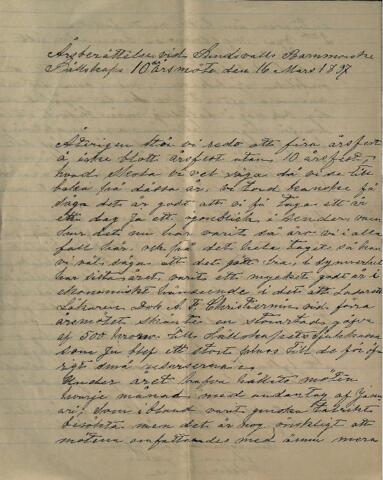 Årsberättelse vid Sundsvalls Barnmorske
Sällskaps 10 årsmöte den 16 Mars 1897
Återigen stå vi redo att fira årsfest
å icke blott årsfest utan 10 årsfest,
hvad skola vi väl säga då vi se till
baka på dässa år, vi tord kanske få
säga det är godt att vi få taga ett år
ett dag ja ett ögonblick i sender, men
hur det nu har varit så äro vi i alla
fall här, och på det hela taget så kan
vi väl säga att det gått bra, i synnerhet
har sista året varit ett mycket godt år i
ekonomiskt hänseende i det att Lasarets
Läkaren Dok A. F. Christiernin vid förra
årsmötet skänkte en storartad gåfva
af 500 kronor till Sällskapets Sjukkassa
som ju blef ett stort plus till de för öf
rigt små resurserna.
Under året hafva hållits möten
hvarje månad med undantag af Janu
ari, som ibland varit ganska talrikt
besökta men det är nog önskligt att
mötena omfattades med ännu mera